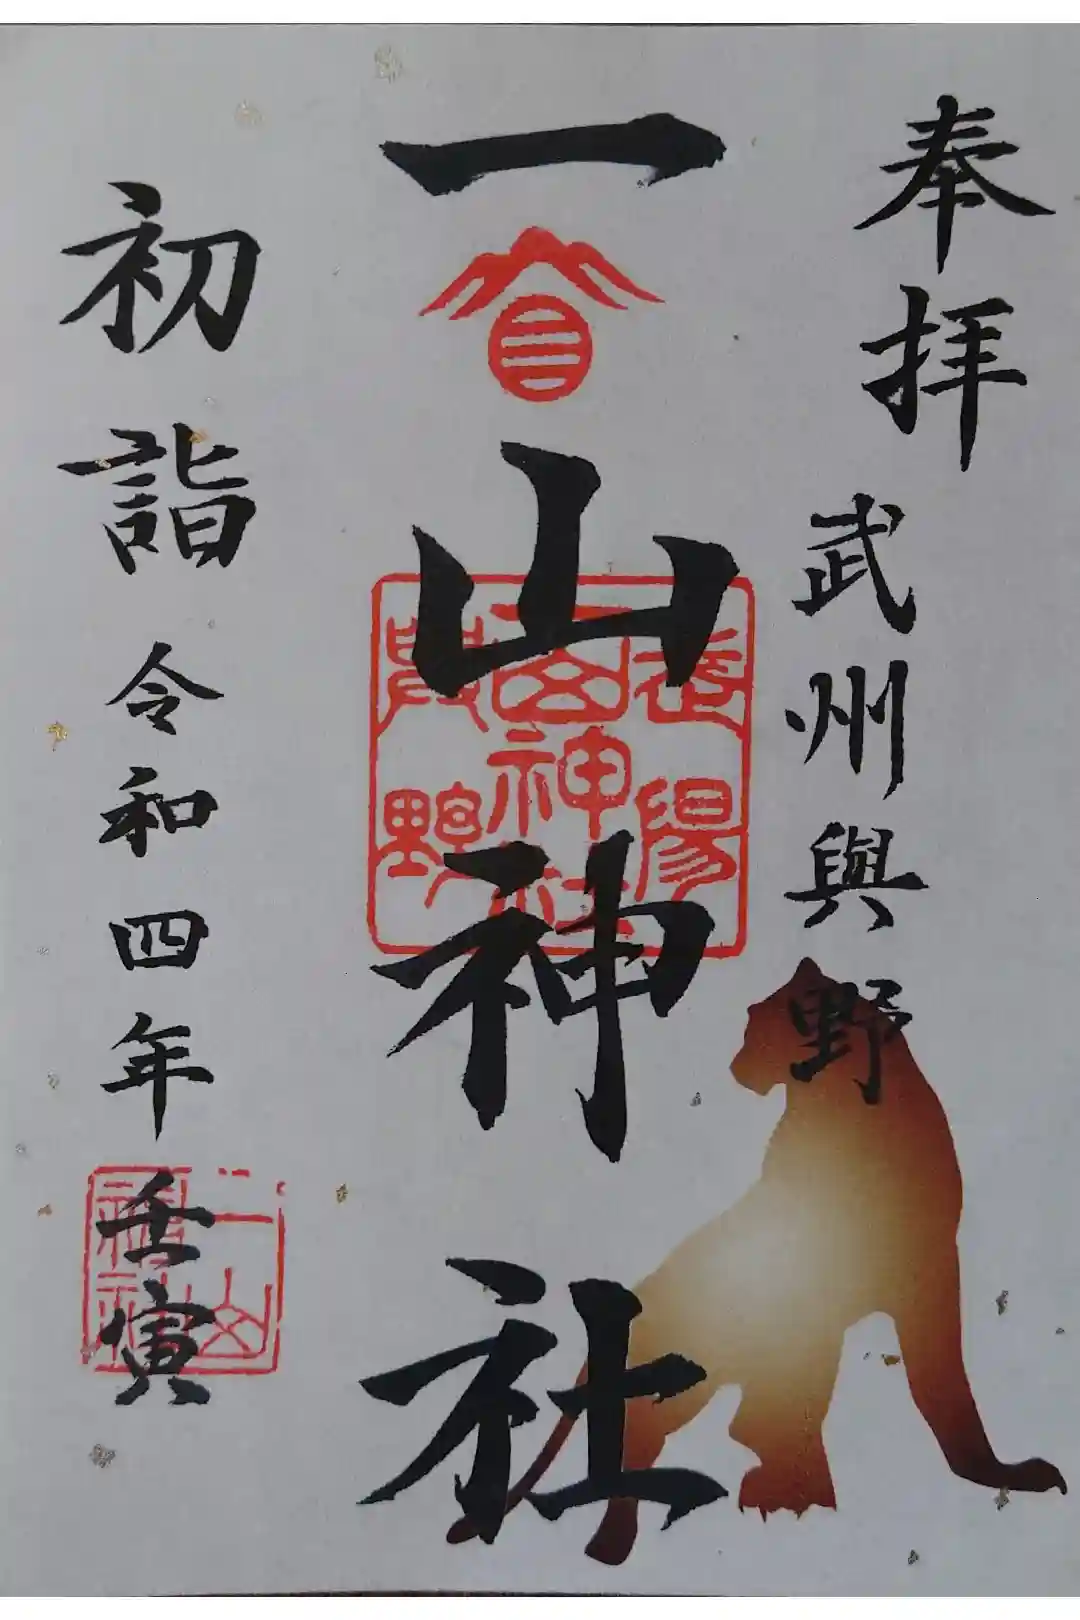 奉拝
武州與野
一山神社
初詣
令和四年
壬寅